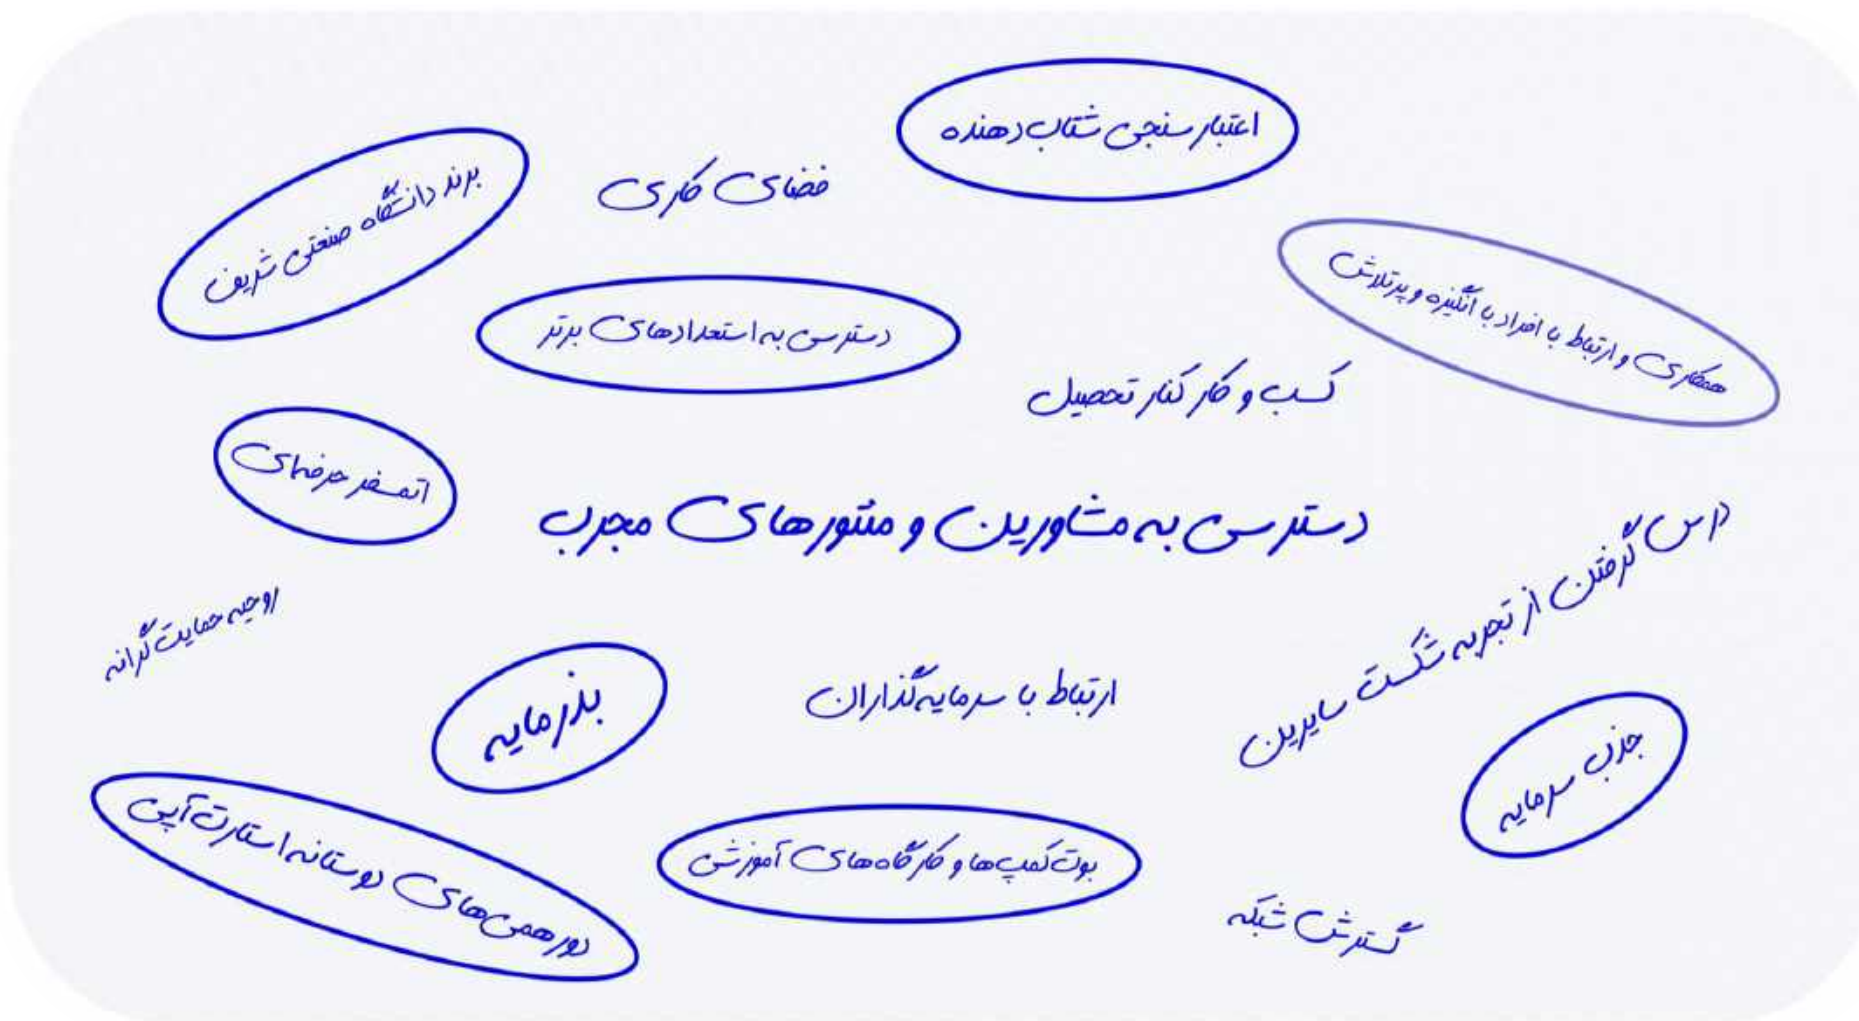 اعتبار سنجی شتاب دهنده
فضای کاری
برند دانشگاه صنعتی شریف
همکاری و ارتباط با افراد با انگیزه و پرتلاش
دسترسی به استعدادهای برتر
کسب و کار کنار تحصیل
اتمسفر حرفه‌ای
دسترسی به مشاورین و منتورهای مجرب
درس گرفتن از تجربه شکست سایرین
روحیه حمایت گرانه
ارتباط با سرمایه‌گذاران
بذر مایه
جذب سرمایه
بوت‌کمپ‌ها و کارگاه‌های آموزشی
دور همی‌های دوستانه استارت آپی
گسترش شبکه